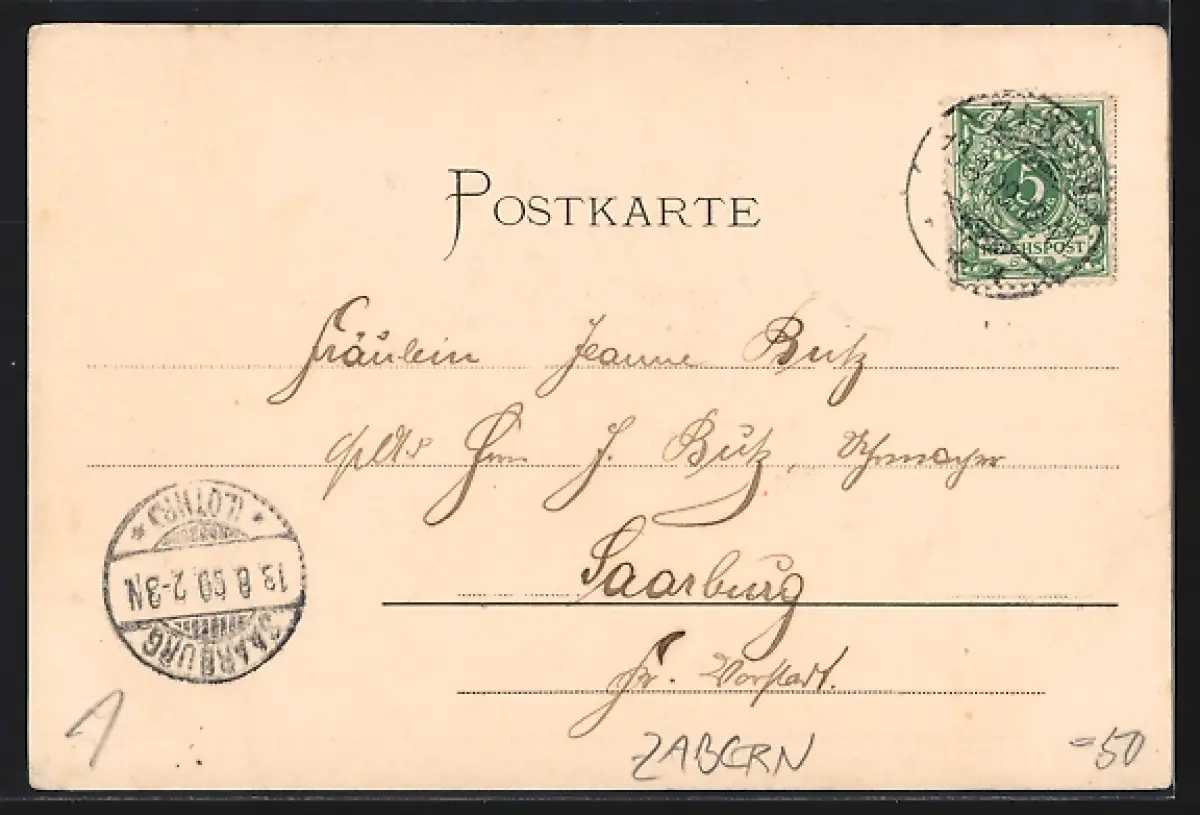 POSTKARTE
5
REICHSPOST
Fräulein Jeanne Butz
Herrn J. Butz,
Saarburg
Fr. Vorstadt.
SAARBURG
13.8.99.2-3N
* (LOTHR) *
ZABERN
=50